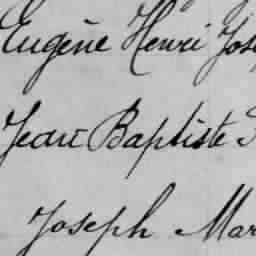 Eugène Henri Jos
Jean Baptiste
Joseph Mar